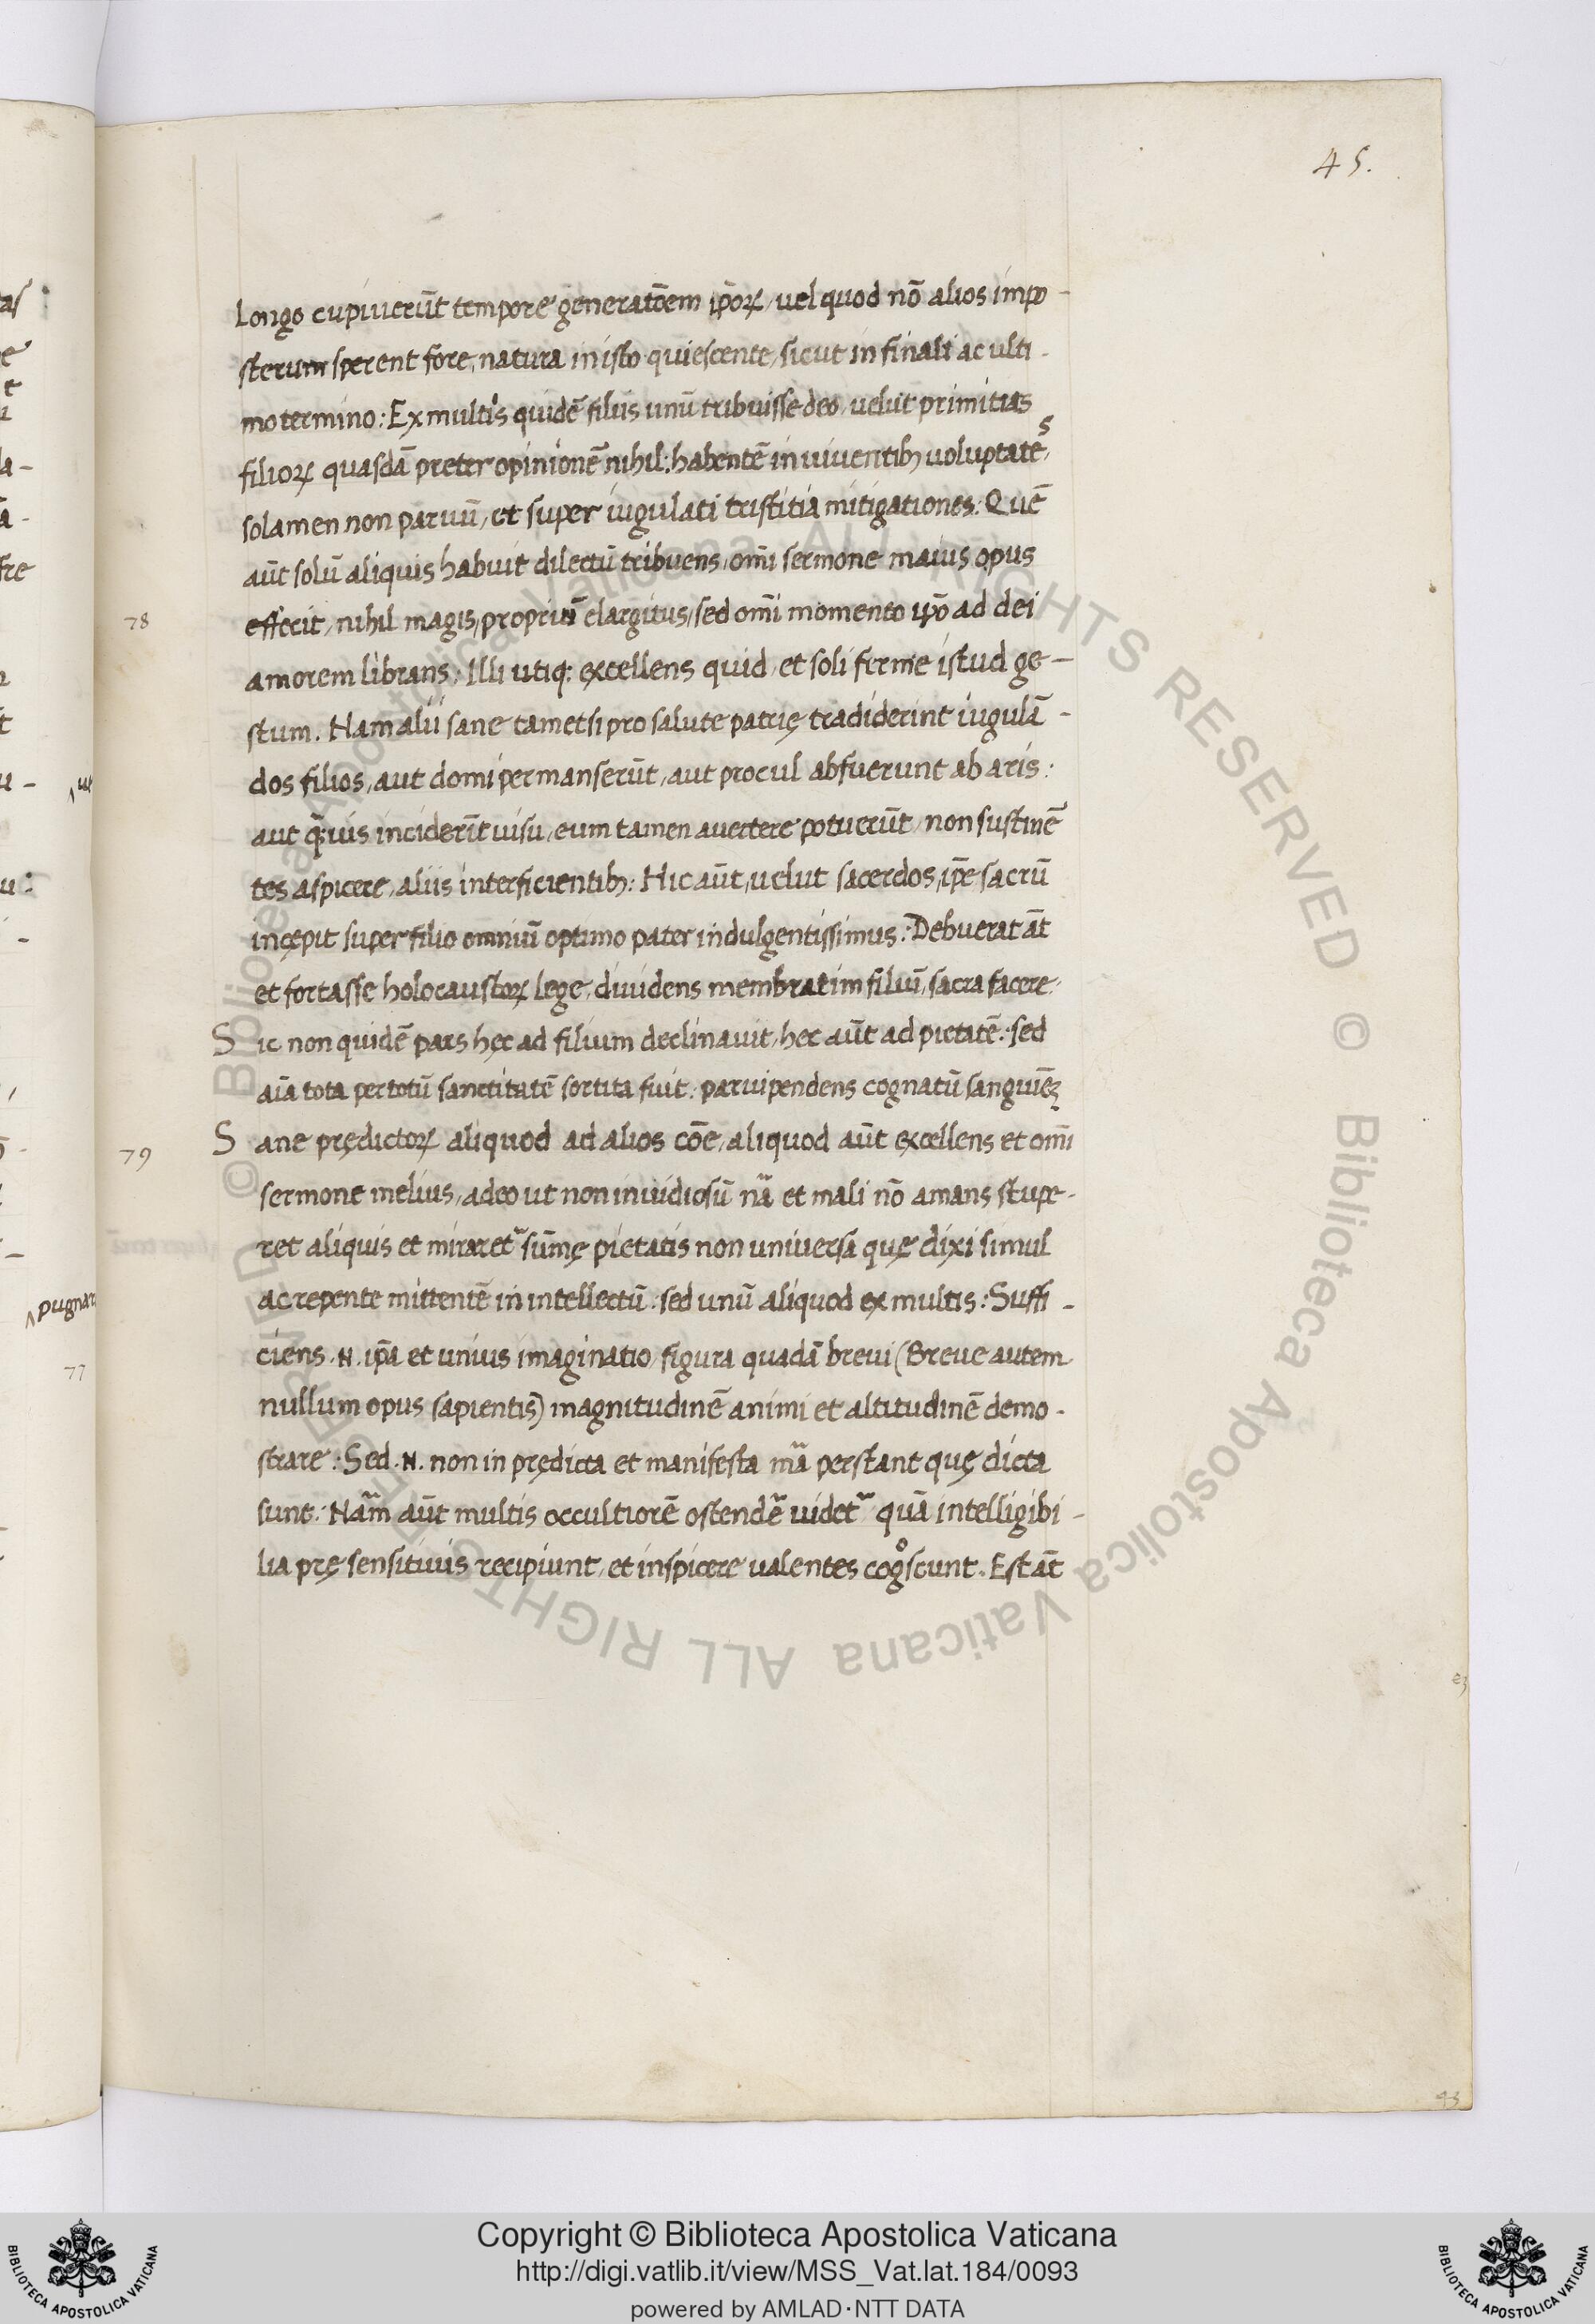 45.
Longo cupiuerūt tempore generatōem ip̄oꝝ, uel quod nō alios impo-
sterum sperent fore, natura in isto quiescente, sicut in finali ac ulti-
mo termino: Ex multis quidē filiis unū tribuisse deo, uelut primitias
filioꝝ quasdā preter opinionē nihil: habentē in uiuentibꝫ uoluptatēs,
solamen non paruū, et super iugulati tristitia mitigationes: Quē
aūt solū aliquis habuit dilectū tribuens, om̄i sermone maius opus
78
efficit, nihil magis, propriū elargitus, sed om̄i momento ip̄o ad dei
amorem librans: Illi utiq: excellens quid, et soli ferme istud ge-
stum. Nam alii sane tametsi pro salute patrię tradiderint iugulā-
dos filios, aut domi permanserūt, aut procul abfuerunt ab aris:
aut q̄uis inciderīt uisu, eum tamen auertere potuerūt, non sustinē
tes aspicere, aliis interficientibꝫ: Hic aūt, uelut sacerdos, ip̄e sacrū
incępit super filio omniū optimo pater indulgentissimus: Debuerat āt
et fortasse holocaustoꝝ lege, diuidens membratim filiū, sacra facere:
Sic non quidē pars hęc ad filium declinauit, hec aūt ad pietatē: sed
aīa tota per totū sanctitatē sortita fuit: paruipendens cognatū sanguīeꝫ
79
Sane prędictoꝝ aliquod ad alios cōe, aliquod aūt excellens et om̄i
sermone melius, adeo ut non inuidiosū nā et mali nō amans stupe-
ret aliquis et miraret sūmę pietatis non uniuersa quę dixi simul
ac repente mittentē in intellectū: sed unū aliquod ex multis: Suffi-
ciens .N. ip̄a et unius imaginatio, figura quadā breui (Breue autem
nullum opus sapientis) magnitudinē animi et altitudinē demo-
strare: Sed .N. non in prędicta et manifesta mā perstant quę dicta
sunt: Nām aūt multis occultiorē ostendē uidet quā intelligibi-
lia pre sensitiuis recipiunt, et inspicere ualentes cog̊scunt. Est āt
ʌ pugnar
77
43
Copyright © Biblioteca Apostolica Vaticana
http://digi.vatlib.it/view/MSS_Vat.lat.184/0093
powered by AMLAD·NTT DATA
BIBLIOTECA APOSTOLICA VATICANA
BIBLIOTECA APOSTOLICA VATICANA
© Biblioteca Apostolica Vaticana ALL RIGHTS RESERVED © Biblioteca Apostolica Vaticana ALL RIGHTS RESERVED